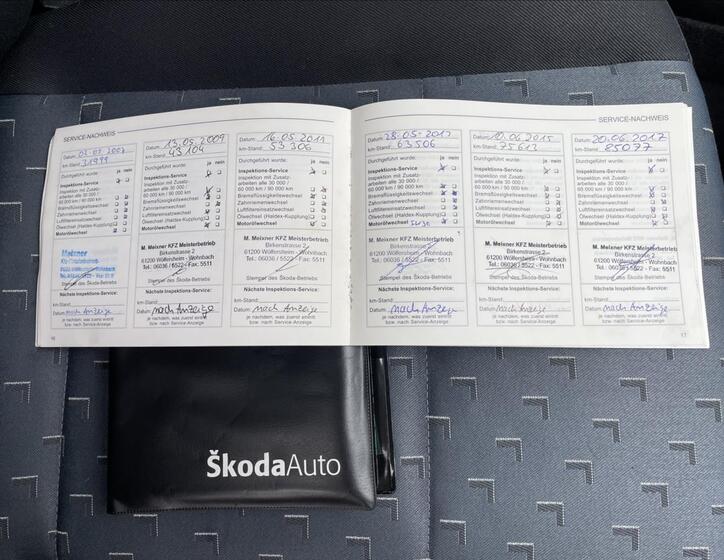 SERVICE-NACHWEIS
km-Stand: 31999
Durchgeführt wurde: ja nein
Inspektions-Service
Inspektion mit Zusatz-
arbeiten alle 30 000 /
60 000 km / 90 000 km
Bremsflüssigkeitswechsel
Zahnriemenwechsel
Luftfiltereinsatzwechsel
Ölwechsel (Haldex-Kupplung)
Motorölwechsel
Meixner
Stempel des Škoda-Betriebs
Nächste Inspektions-Service:
km-Stand:
Datum: nach Anzeige
je nachdem, was zuerst eintritt
bzw. nach Service-Anzeige
16
Datum: 13.05.2009
km-Stand: 45104
Durchgeführt wurde: ja nein
Inspektions-Service
Inspektion mit Zusatz-
arbeiten alle 30 000 /
60 000 km / 90 000 km
Bremsflüssigkeitswechsel
Zahnriemenwechsel
Luftfiltereinsatzwechsel
Ölwechsel (Haldex-Kupplung)
Motorölwechsel
M. Meixner KFZ Meisterbetrieb
Birkenstrasse 2
61200 Wölfersheim - Wohnbach
Tel.: 06036 / 5522 - Fax: 5511
Stempel des Škoda-Betriebs
Nächste Inspektions-Service:
km-Stand:
Datum: nach Anzeige
je nachdem, was zuerst eintritt
bzw. nach Service-Anzeige
Datum: 16.05.2011
km-Stand: 53306
Durchgeführt wurde: ja nein
Inspektions-Service
Inspektion mit Zusatz-
arbeiten alle 30 000 /
60 000 km / 90 000 km
Bremsflüssigkeitswechsel
Zahnriemenwechsel
Luftfiltereinsatzwechsel
Ölwechsel (Haldex-Kupplung)
Motorölwechsel
M. Meixner KFZ Meisterbetrieb
Birkenstrasse 2
61200 Wölfersheim - Wohnbach
Tel.: 06036 / 5522 - Fax: 5511
Stempel des Škoda-Betriebs
Nächste Inspektions-Service:
km-Stand:
Datum: nach Anzeige
je nachdem, was zuerst eintritt
bzw. nach Service-Anzeige
SERVICE-NACHWEIS
km-Stand: 63506
Durchgeführt wurde: ja nein
Inspektions-Service
Inspektion mit Zusatz-
arbeiten alle 30 000 /
60 000 km / 90 000 km
Bremsflüssigkeitswechsel
Zahnriemenwechsel
Luftfiltereinsatzwechsel
Ölwechsel (Haldex-Kupplung)
Motorölwechsel 5W30
M. Meixner KFZ Meisterbetrieb
Birkenstrasse 2
61200 Wölfersheim - Wohnbach
Tel.: 06036 / 5522 - Fax: 5511
Stempel des Škoda-Betriebs
Nächste Inspektions-Service:
km-Stand:
Datum: nach Anzeige
je nachdem, was zuerst eintritt
bzw. nach Service-Anzeige
Datum: 10.06.2015
km-Stand: 75613
Durchgeführt wurde: ja nein
Inspektions-Service
Inspektion mit Zusatz-
arbeiten alle 30 000 /
60 000 km / 90 000 km
Bremsflüssigkeitswechsel
Zahnriemenwechsel
Luftfiltereinsatzwechsel
Ölwechsel (Haldex-Kupplung)
Motorölwechsel
M. Meixner KFZ Meisterbetrieb
Birkenstrasse 2
61200 Wölfersheim - Wohnbach
Tel.: 06036 / 5522 - Fax: 5511
Stempel des Škoda-Betriebs
Nächste Inspektions-Service:
km-Stand:
Datum: nach Anzeige
je nachdem, was zuerst eintritt
bzw. nach Service-Anzeige
Datum: 20.06.2017
km-Stand: 85077
Durchgeführt wurde: ja nein
Inspektions-Service
Inspektion mit Zusatz-
arbeiten alle 30 000 /
60 000 km / 90 000 km
Bremsflüssigkeitswechsel
Zahnriemenwechsel
Luftfiltereinsatzwechsel
Ölwechsel (Haldex-Kupplung)
Motorölwechsel
M. Meixner KFZ Meisterbetrieb
Birkenstrasse 2
61200 Wölfersheim - Wohnbach
Tel.: 06036 / 5522 - Fax: 5511
Stempel des Škoda-Betriebs
Nächste Inspektions-Service:
km-Stand:
Datum: nach Anzeige
je nachdem, was zuerst eintritt
bzw. nach Service-Anzeige
17
ŠkodaAuto